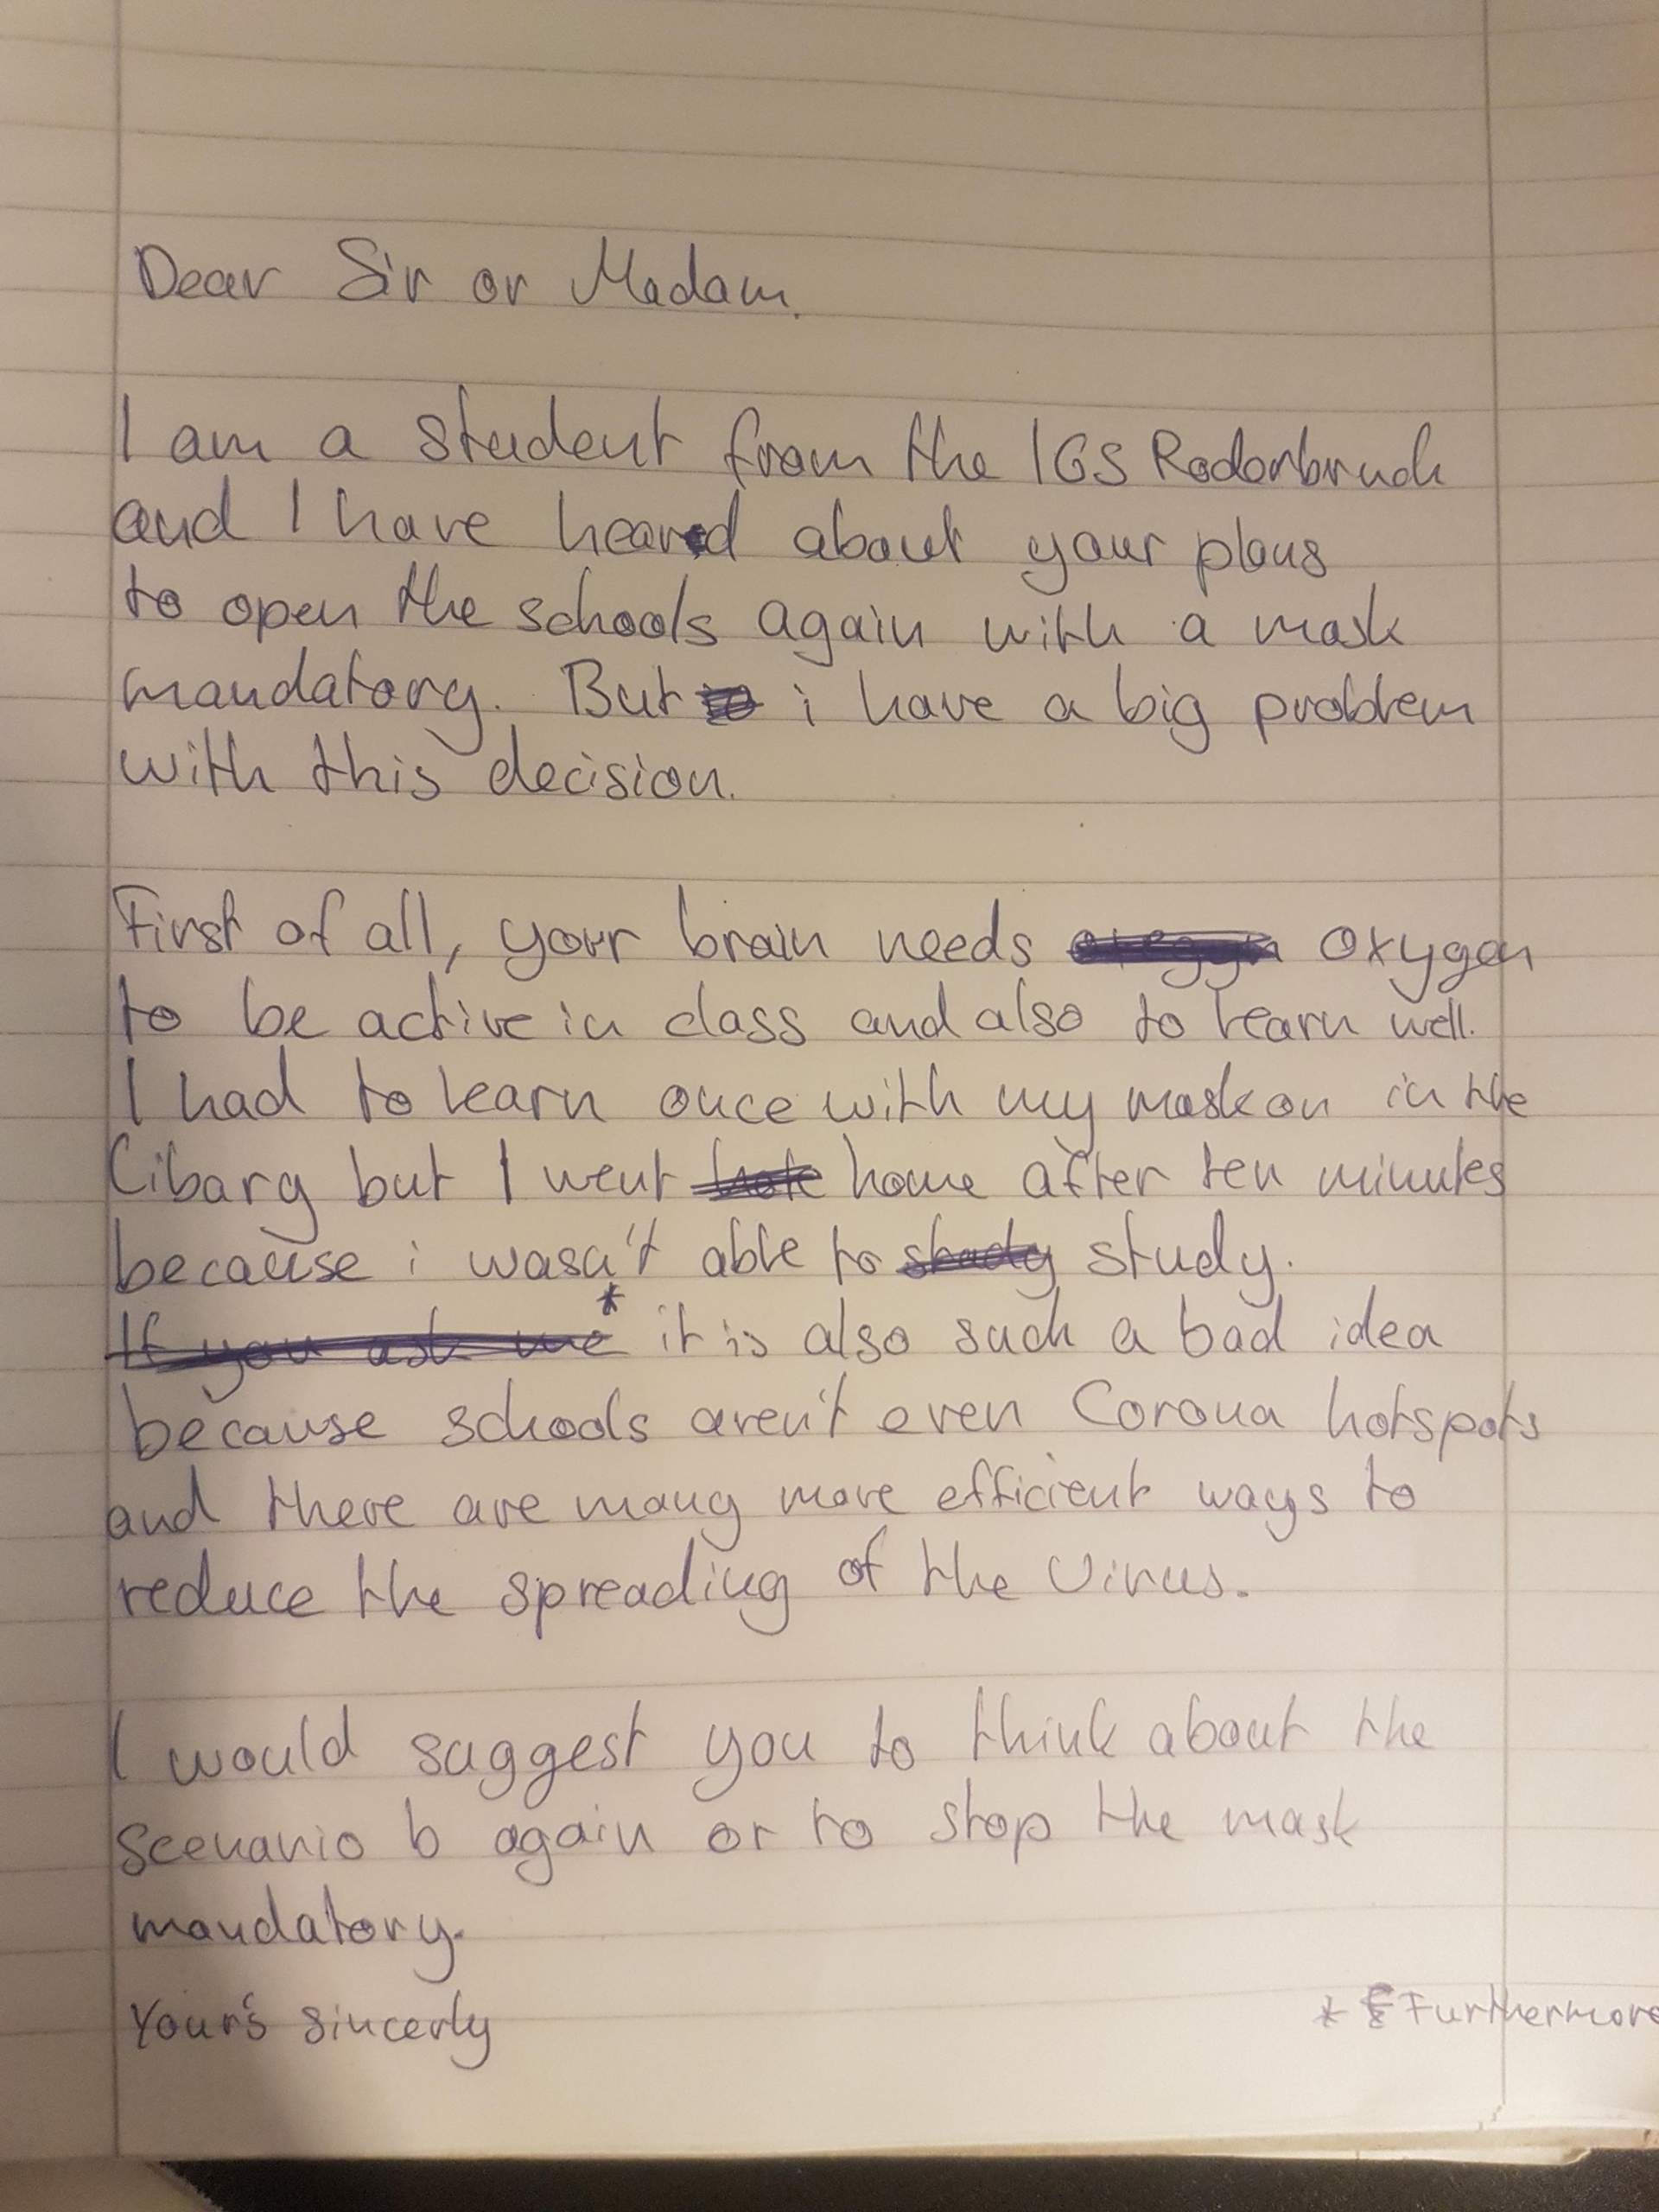 Dear Sir or Madam,
I am a student from the IGS Roderbruch
and I have heard about your plans
to open the schools again with a mask
mandatory. But i have a big problem
with this decision.
First of all, your brain needs oxygen
to be active in class and also to learn well.
I had to learn once with my mask on in the
Cibary but I went home after ten minutes
because i wasn't able to study.
If you ask me * it is also such a bad idea
because schools aren't even Corona hotspots
and there are many more efficient ways to
reduce the spreading of the Virus.
I would suggest you to think about the
Scenario b again or to stop the mask
mandatory.
Your's sincerly
* Furthermore